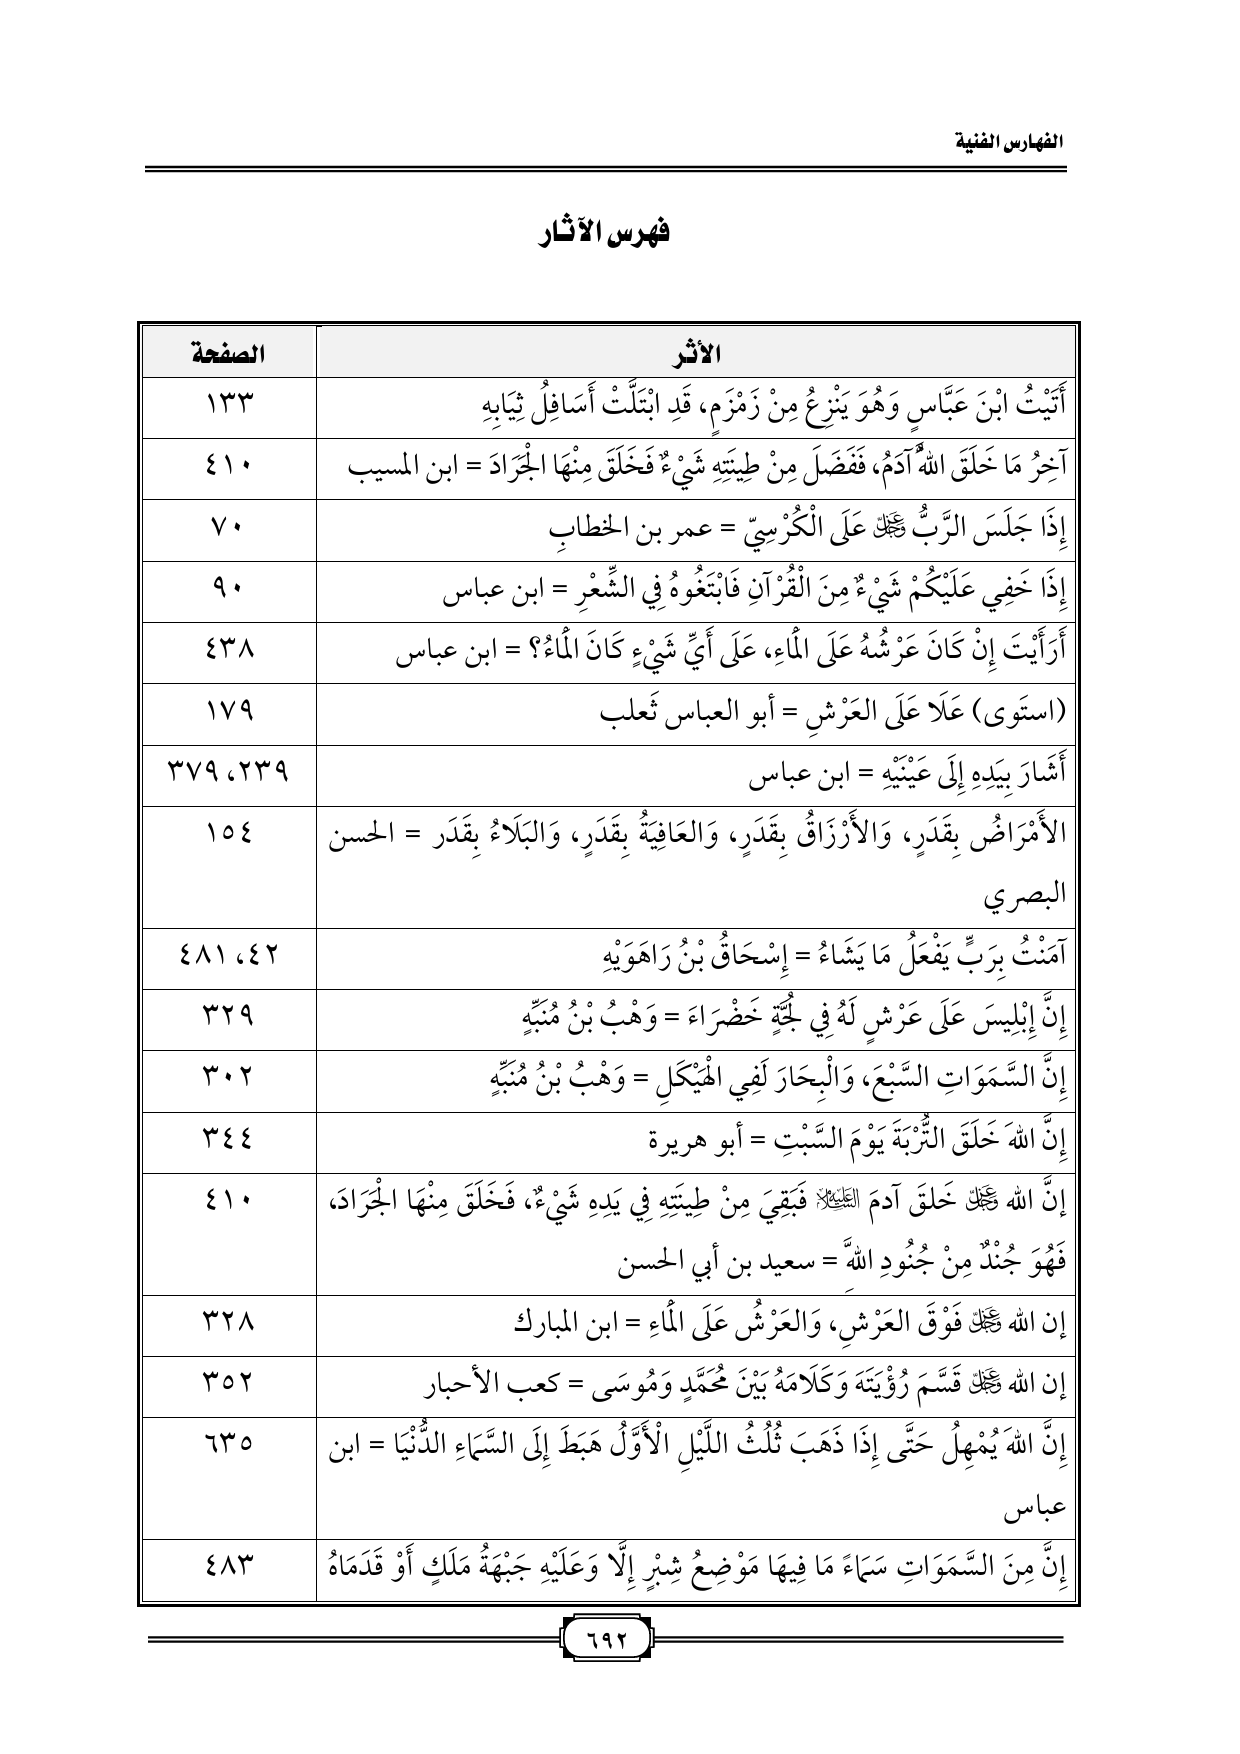 الفهارس الفنية
فهرس الآثار
الأثر الصفحة
أَتَيْتُ ابْنَ عَبَّاسٍ وَهُوَ يَنْزِعُ مِنْ زَمْزَمٍ، قَدِ ابْتَلَّتْ أَسَافِلُ ثِيَابِهِ ١٣٣
آخِرُ مَا خَلَقَ اللهُ آدَمُ، فَفَضَلَ مِنْ طِينَتِهِ شَيْءٌ فَخَلَقَ مِنْهَا الْجَرَادَ = ابن المسيب ٤١٠
إِذَا جَلَسَ الرَّبُّ عَزَّ وَجَلَّ عَلَى الْكُرْسِيّ = عمر بن الخطابِ ٧٠
إِذَا خَفِي عَلَيْكُمْ شَيْءٌ مِنَ الْقُرْآنِ فَابْتَغُوهُ فِي الشِّعْرِ = ابن عباس ٩٠
أَرَأَيْتَ إِنْ كَانَ عَرْشُهُ عَلَى الْمَاءِ، عَلَى أَيِّ شَيْءٍ كَانَ الْمَاءُ؟ = ابن عباس ٤٣٨
(استَوى) عَلَا عَلَى العَرْشِ = أبو العباس ثَعلب ١٧٩
أَشَارَ بِيَدِهِ إِلَى عَيْنَيْهِ = ابن عباس ٢٣٩، ٣٧٩
الأَمْرَاضُ بِقَدَرٍ، وَالأَرْزَاقُ بِقَدَرٍ، وَالعَافِيَةُ بِقَدَرٍ، وَالبَلَاءُ بِقَدَر = الحسن ١٥٤
البصري
آمَنْتُ بِرَبٍّ يَفْعَلُ مَا يَشَاءُ = إِسْحَاقُ بْنُ رَاهَوَيْهِ ٤٢، ٤٨١
إِنَّ إِبْلِيسَ عَلَى عَرْشٍ لَهُ فِي لُجَّةٍ خَضْرَاءَ = وَهْبُ بْنُ مُنَبِّهٍ ٣٢٩
إِنَّ السَّمَوَاتِ السَّبْعَ، وَالْبِحَارَ لَفِي الْهَيْكَلِ = وَهْبُ بْنُ مُنَبِّهٍ ٣٠٢
إِنَّ اللهَ خَلَقَ التُّرْبَةَ يَوْمَ السَّبْتِ = أبو هريرة ٣٤٤
إنَّ الله عَزَّ وَجَلَّ خَلقَ آدمَ عَلَيْهِ السَّلَام فَبَقِيَ مِنْ طِينَتِهِ فِي يَدِهِ شَيْءٌ، فَخَلَقَ مِنْهَا الْجَرَادَ، ٤١٠
فَهُوَ جُنْدٌ مِنْ جُنُودِ اللهِ = سعيد بن أبي الحسن
إن الله عَزَّ وَجَلَّ فَوْقَ العَرْشِ، وَالعَرْشُ عَلَى الْمَاءِ = ابن المبارك ٣٢٨
إن الله عَزَّ وَجَلَّ قَسَّمَ رُؤْيَتَهَ وَكَلَامَهُ بَيْنَ مُحَمَّدٍ وَمُوسَى = كعب الأحبار ٣٥٢
إِنَّ اللهَ يُمْهِلُ حَتَّى إِذَا ذَهَبَ ثُلُثُ اللَّيْلِ الْأَوَّلُ هَبَطَ إِلَى السَّمَاءِ الدُّنْيَا = ابن ٦٣٥
عباس
إِنَّ مِنَ السَّمَوَاتِ سَمَاءً مَا فِيهَا مَوْضِعُ شِبْرٍ إِلَّا وَعَلَيْهِ جَبْهَةُ مَلَكٍ أَوْ قَدَمَاهُ ٤٨٣
٦٩٢